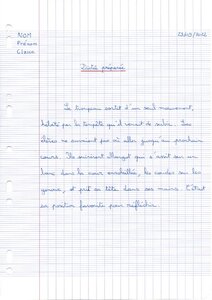 NOM
Prénom
Classe
Dictée préparée
Le troupeau sortit d'un seul mouvement,
hébété par la tempête qu'il venait de subir. Les
élèves ne savaient pas où aller jusqu'au prochain
cours. Ils suivirent Margot qui s'assit sur un
banc dans la cour ensoleillée, les coudes sur les
genoux, et prit sa tête dans ses mains. C'était
sa position favorite pour réfléchir.